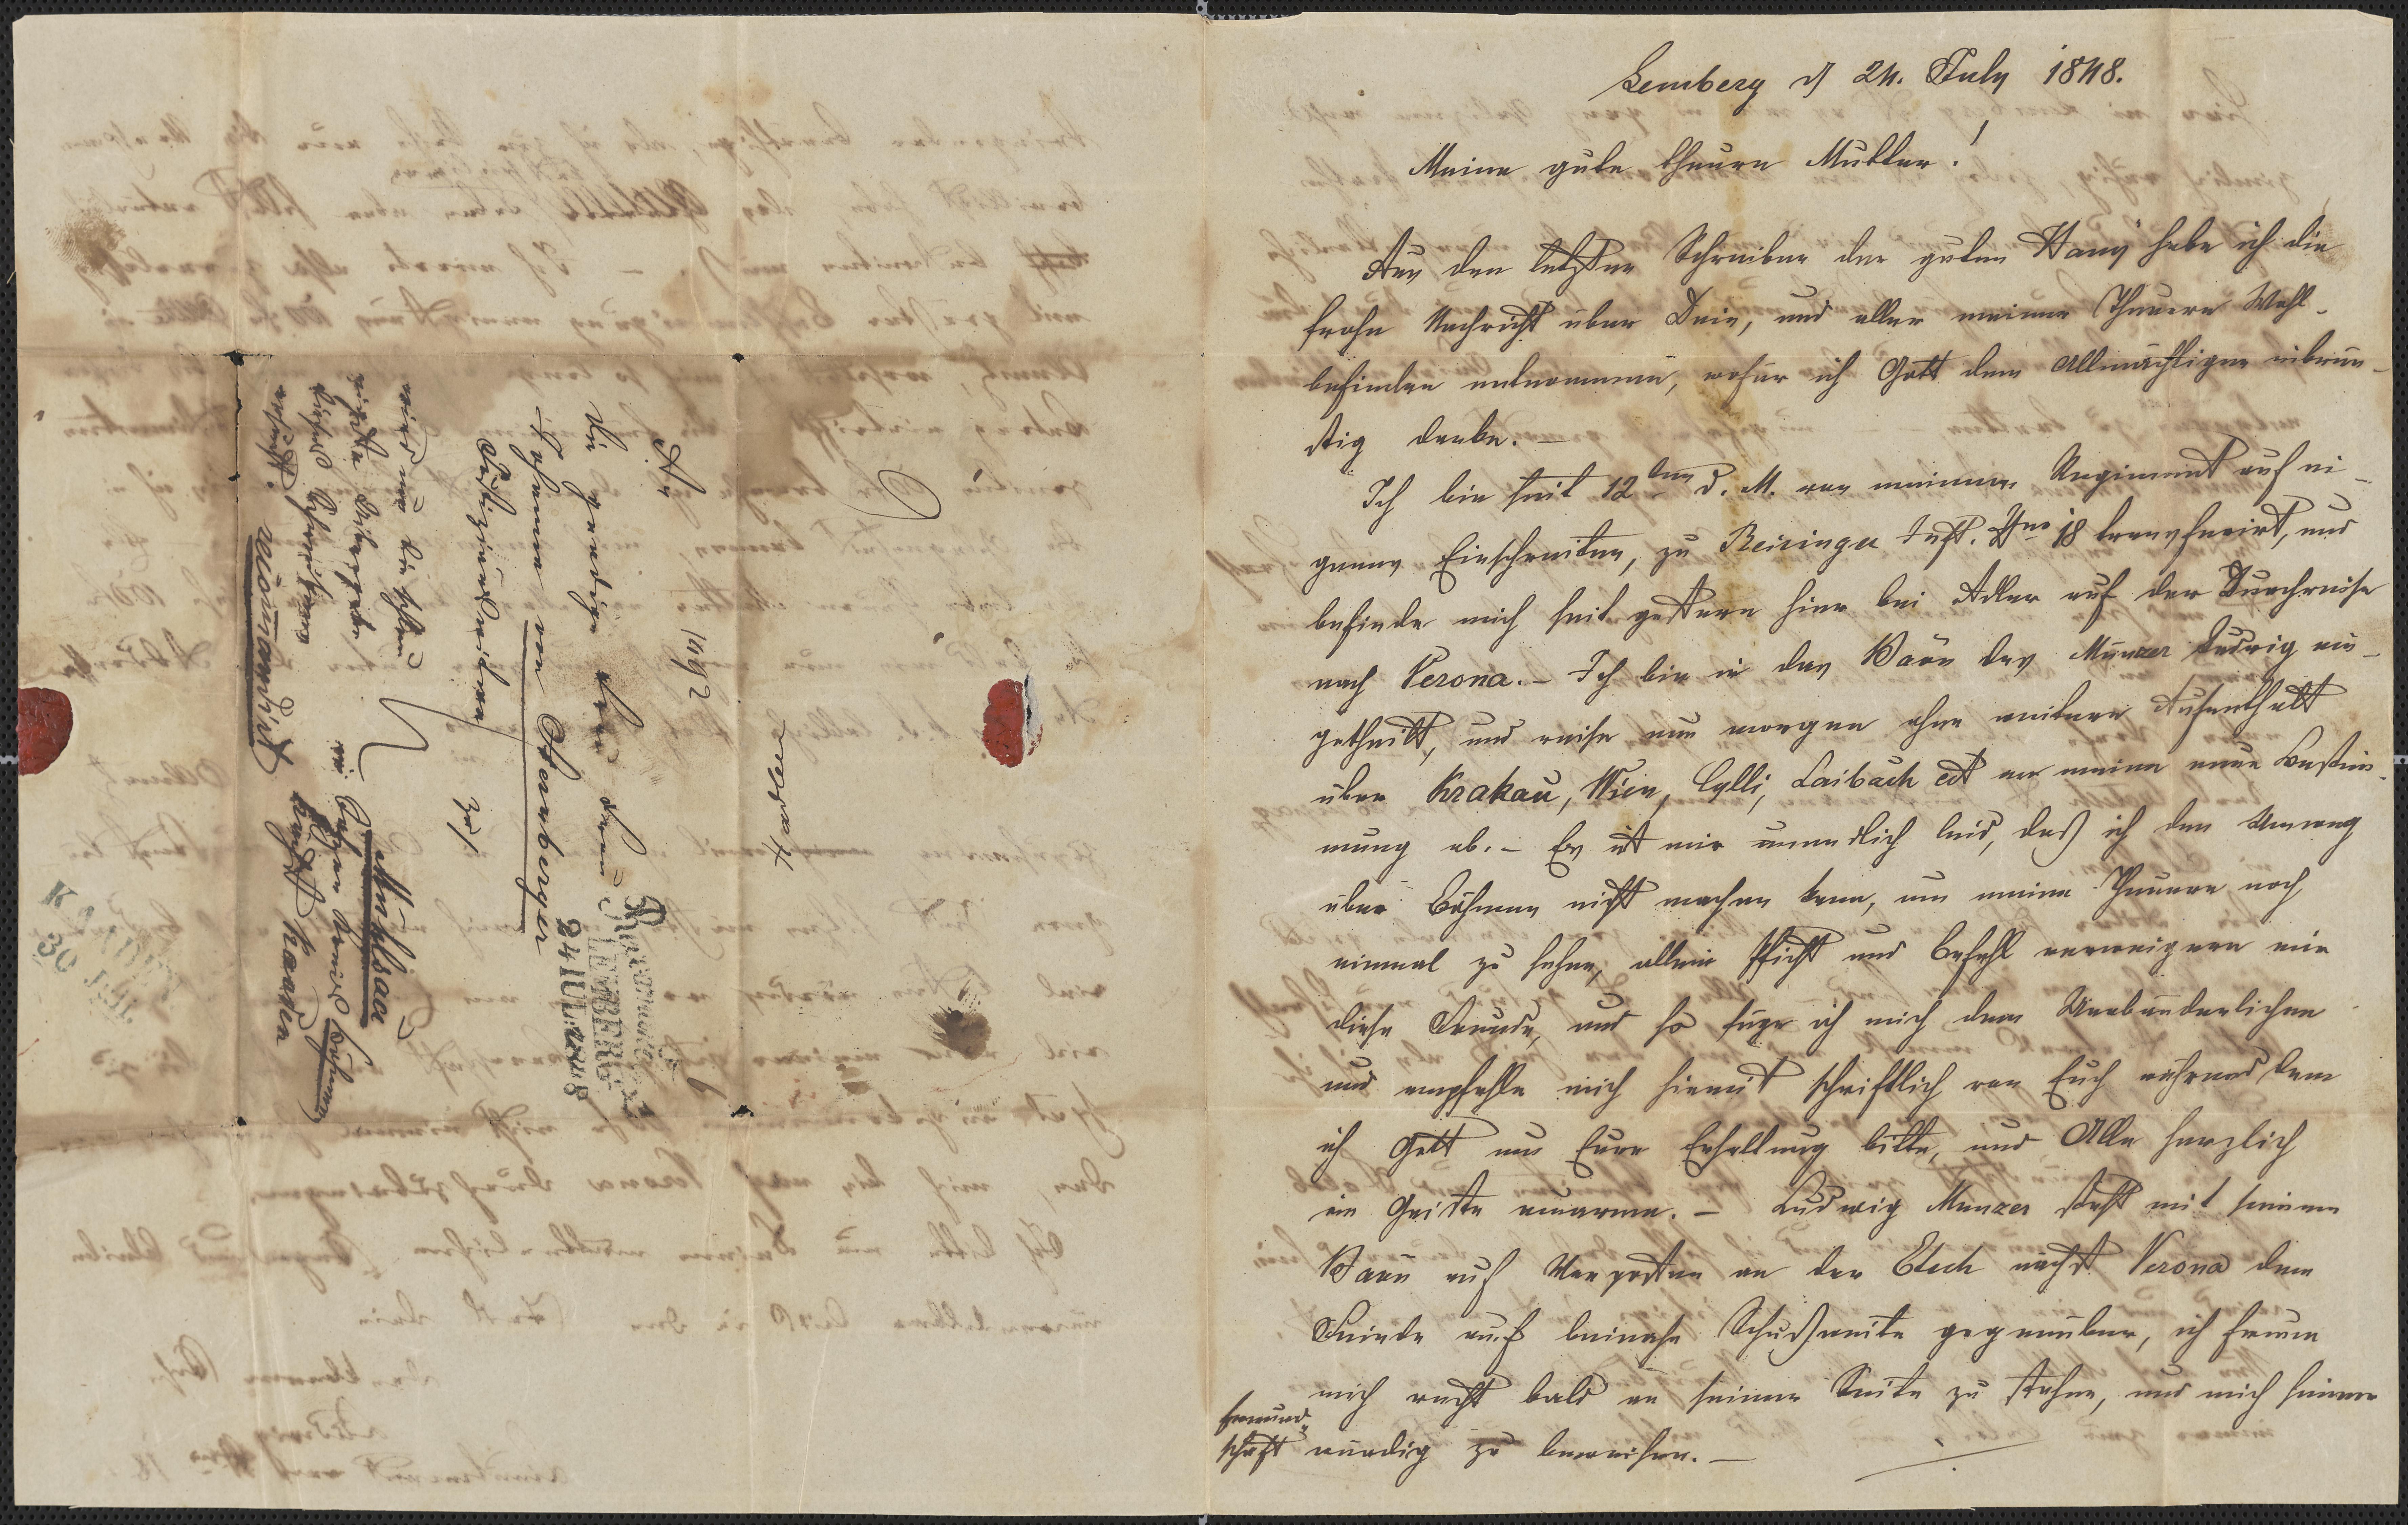 Lemberg d 24. July 1848.
Meine gute theure Mutter!
Aus den letzten Schreiben der guten Nany habe ich die
frohe Nachricht über Dein, und aller meiner Theuern Wohl-
befinden entnommen, wofür ich Gott dem Allmächtigen inbrün-
stig danke. –
Ich bin seit 12ten d. M. von meinem Regiment auf ei-
genes Einschreiten, zu Reisinger Inft. Nro 18 transferirt, und
befinde mich seit gestern hier bei Adler auf der Durchreise
nach Verona. – Ich bin in das Baon des Munzer Ludwig ein-
getheilt, und reise nun morgen ohne weitern Aufenthalt
über Krakau, Wien, Cylli, Laibach ect an meine neue Bestim-
mung ab. – Es ist mir unendlich leid, daß ich den Umweg
über Böhmen nicht machen kann, um meine Theuern noch
einmal zu sehen, allein Pflicht und Befehl verweigern mir
diese Freude, und so füge ich mich dem Unabänderlichen
und empfehle mich hiemit schriftlich von Euch während dem
ich Gott um Eure Erhaltung bitte, und Alle herzlich
im Geiste umarme. – Ludwig Munzer steht mit seinem
Baon auf Vorposten an der Etsch nächst Verona dem
Feinde auf beinahe Schußweite gegenüber, ich freue
mich recht bald an seiner Seite zu stehen, und mich seiner
Freund-
schaft würdig zu beweisen. –
An
die gnädige Frau Frau
Johanna von Sternberger
zu
Mühlsack
in Böhmen
recomandirt
Recommandirt
LEMBERG
24 IUL: 1848
K
30 JUL.